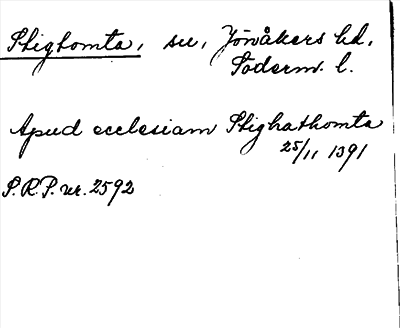 Stigtomta, sn, Jönåkers hd,
Söderm. l.
Apud ecclesiam Stighathomta
25/11 1391
S.R.P. nr. 2592